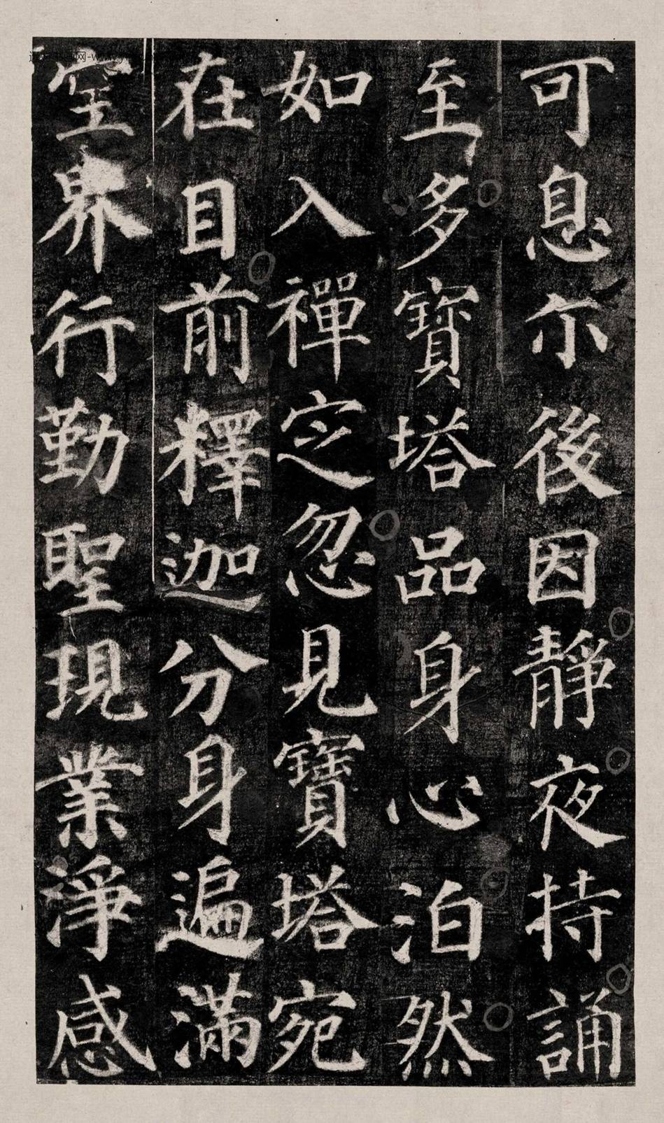 可息尒後因靜夜持誦
至多寶塔品身心泊然
如入禪定忽見寶塔宛
在目前釋迦分身遍滿
空界行勤聖現業淨感